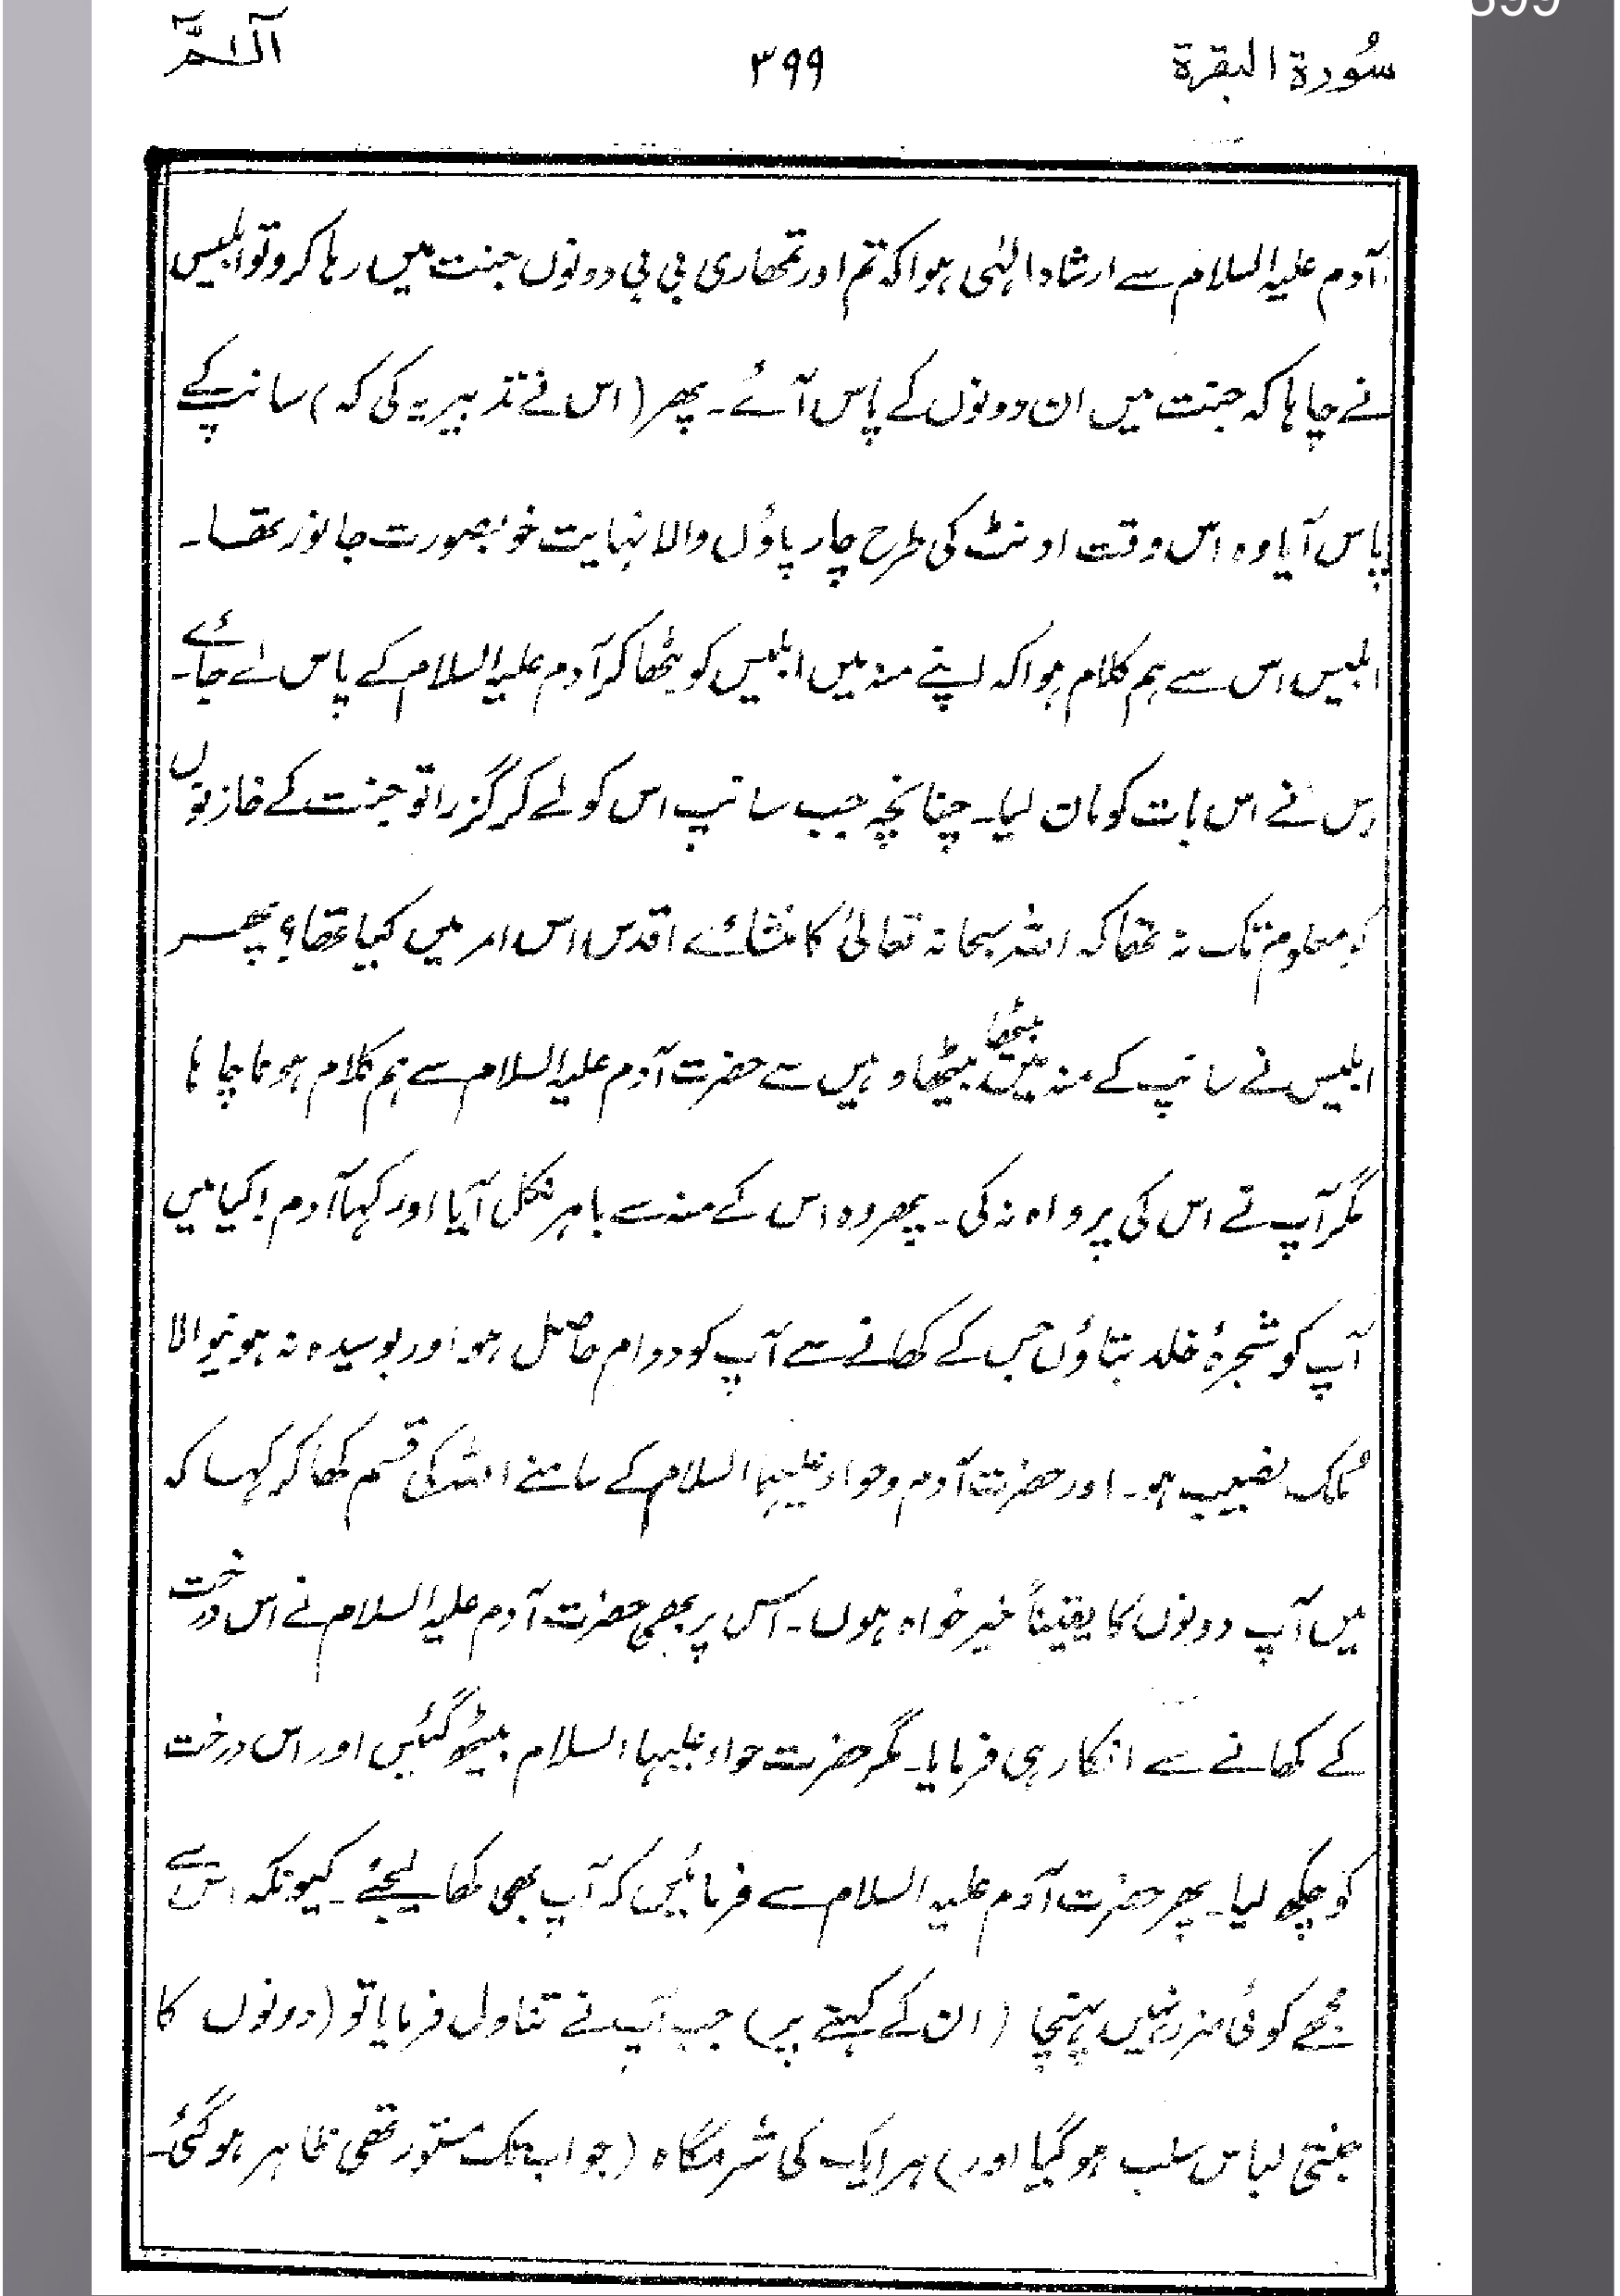 سُورة البقرة
٣٩٩
آلٓمّٓ
آدم علیہ السلام سے ارشاد الٰہی ہوا کہ تم اور تمھاری بی بی دونوں جنت میں رہا کرو تو ابلیس
نے چاہا کہ جنت میں ان دونوں کے پاس آئے۔ پھر (اس نے تدبیر یہ کی کہ) سانپ کے
پاس آیا وہ اس وقت اونٹ کی طرح چار پاؤں والا نہایت خوبصورت جانور تھا۔
ابلیس اس سے ہم کلام ہوا کہ اپنے منہ میں ابلیس کو بٹھا کر آدم علیہ السلام کے پاس لے جائے۔
اس نے اس بات کو مان لیا۔ چنانچہ جب سانپ اس کو لے کر گزرا تو جنت کے خازنوں
کو معلوم تک نہ تھا کہ اللہ سبحانہ تعالیٰ کا منشائے اقدس اس امر میں کیا تھا؟ پھر
ابلیس نے سانپ کے منہ میں بیٹھا بیٹھا وہیں سے حضرت آدم علیہ السلام سے ہم کلام ہونا چاہا
مگر آپ نے اس کی پرواہ نہ کی۔ پھر وہ اس کے منہ سے باہر نکل آیا اور کہا آدم! کیا میں
آپ کو شجرۂ خلد بتاؤں جس کے کھانے سے آپ کو دوام حاصل ہو اور بوسیدہ نہ ہونیوالا
ملک نصیب ہو۔ اور حضرت آدم و حواء علیہما السلام کے سامنے اللہ کی قسم کھا کر کہا کہ
میں آپ دونوں کا یقیناً خیر خواہ ہوں۔ اس پر بھی حضرت آدم علیہ السلام نے اس درخت
کے کھانے سے انکار ہی فرمایا۔ مگر حضرت حواء علیہا السلام بیٹھ گئیں اور اس درخت
کو چکھ لیا۔ پھر حضرت آدم علیہ السلام سے فرمائیں کہ آپ بھی کھا لیجئے۔ کیونکہ اس سے
مجھے کوئی ضرر نہیں پہنچا (ان کے کہنے پر) جب آپ نے تناول فرمایا تو (دونوں کا
جنتی لباس سلب ہو گیا اور) ہر ایک کی شرمگاہ (جو اب تک مستور تھی ظاہر ہو گئی۔